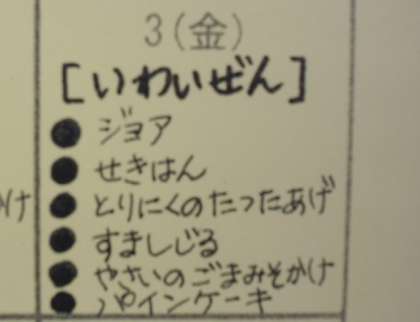 3(金)
[いわいぜん]
● ジョア
● せきはん
● とりにくのたつたあげ
● すましじる
● やさいのごまみそかけ
● パインケーキ